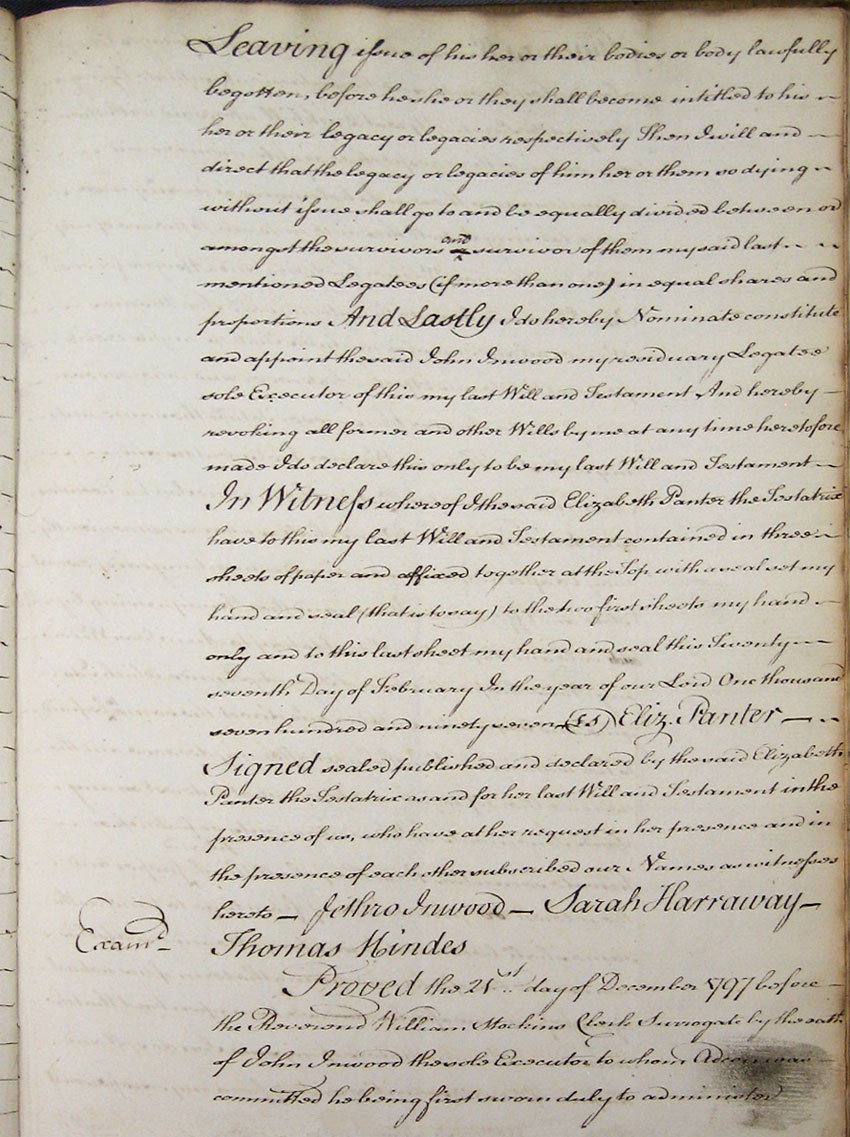 Leaving issue of his her or their bodies or body lawfully
begotten, before he she or they shall become intitled to his
her or their legacy or legacies respectively Then I will and
direct that the legacy or legacies of him her or them so dying
without issue shall go to and be equally divided between or
amongst the survivors and survivor of them my said last
mentioned Legatees (if more than one) in equal shares and
proportions And Lastly I do hereby Nominate constitute
and appoint the said John Inwood my residuary Legatee
sole Executor of this my last Will and Testament And hereby
revoking all former and other Wills by me at any time heretofore
made I do declare this only to be my last Will and Testament
In Witness whereof I the said Elizabeth Panter the Testatrix
have to this my last Will and Testament contained in three
sheets of paper and affixed together at the Top with a seal set my
hand and seal (that is to say) to the two first sheets my hand
only and to this last sheet my hand and seal this Twenty
seventh Day of February In the year of our Lord One thousand
seven hundred and ninety seven (LS) Eliz. Panter
Signed sealed published and declared by the said Elizabeth
Panter the Testatrix as and for her last Will and Testament in the
presence of us, who have at her request in her presence and in
the presence of each other subscribed our Names as witnesses
hereto — Jethro Inwood — Sarah Harraway —
Examd
Thomas Hindes
Proved the 21st day of December 1797 before
the Reverend William Clerk Surrogate by the oath
of John Inwood the sole Executor to whom Admon was
committed he being first sworn duly to administer